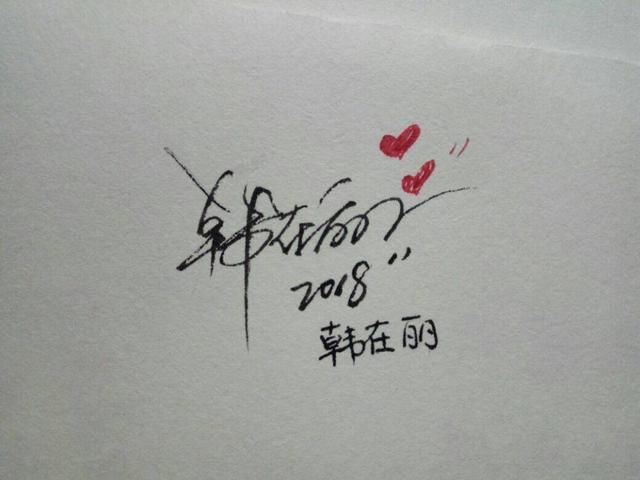 韩在丽
2018
韩在丽